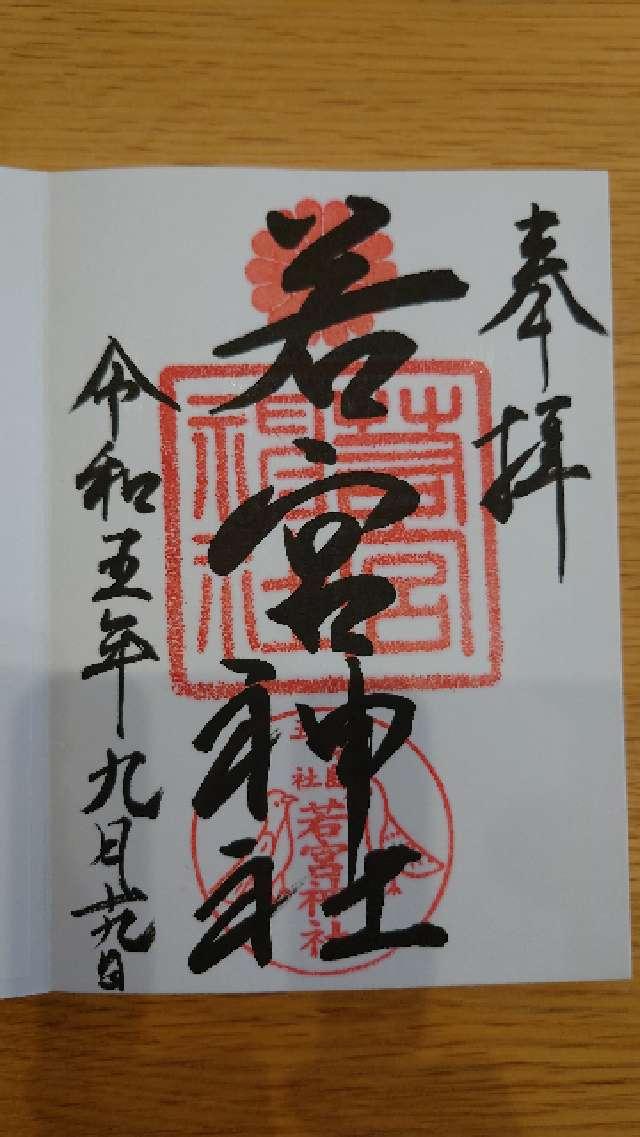 奉拝
若宮神社
令和五年九月廿九日
若宮神社
若宮神社